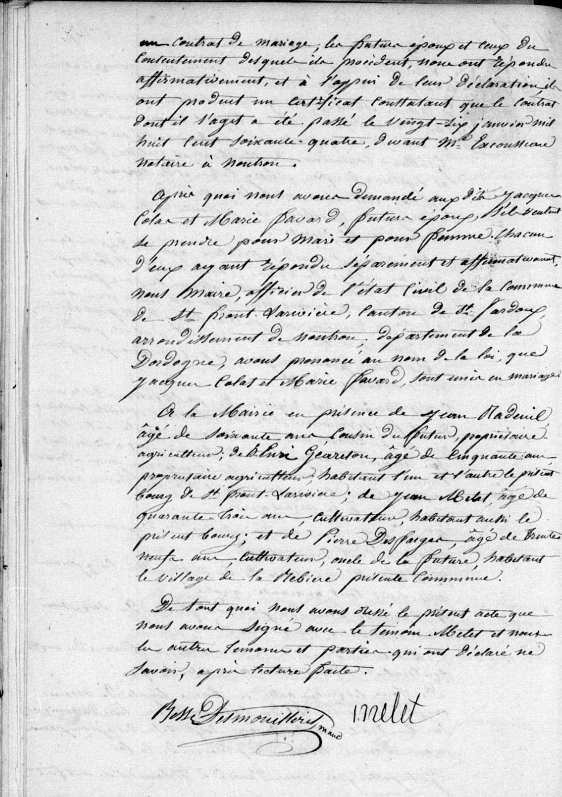 un contrat de mariage, les futurs époux et ceux du
consentement desquels ils procèdent, nous ont répondu
affirmativement, et à l'appui de leur déclaration, ils
ont produit un certificat constatant que le contrat
dont il s'agit a été passé le vingt-six janvier mil
huit cent soixante-quatre, devant Me
notaire à Nontron.
Après quoi nous avons demandé aux dits Jacques
Colas et Marie Favard, futurs époux, s'ils veulent
se prendre pour mari et pour femme. Chacun
d'eux ayant répondu séparément et affirmativement,
nous Maire, officier de l'état civil de la commune
de St front-Larivière, canton de St Pardoux,
arrondissement de nontron, département de la
Dordogne, avons prononcé au nom de la loi, que
Jacques Colas et Marie Favard, sont unis en mariage
à la Mairie en présence de Jean Nadeuil,
âgé de soixante ans cousin du futur, propriétaire
agriculteur; de âgé de Cinquante ans
propriétaire agriculteur habitant l'un et l'autre le présent
bourg de St front-Larivière; de Jean Melet, âgé de
quarante trois ans, cultivateur, habitant aussi le
présent bourg; et de Pierre Desfarges, âgé de trente
neuf ans, cultivateur, oncle de la future, habitant
le village de la présente Commune.
De tout quoi nous avons dressé le présent acte que
nous avons signé avec le témoin Melet et non
les autres témoins et parties qui ont déclaré ne
savoir, après lecture faite.
Desmouilleres melet
maire